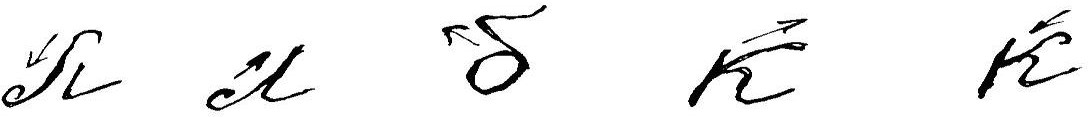 л л б к к